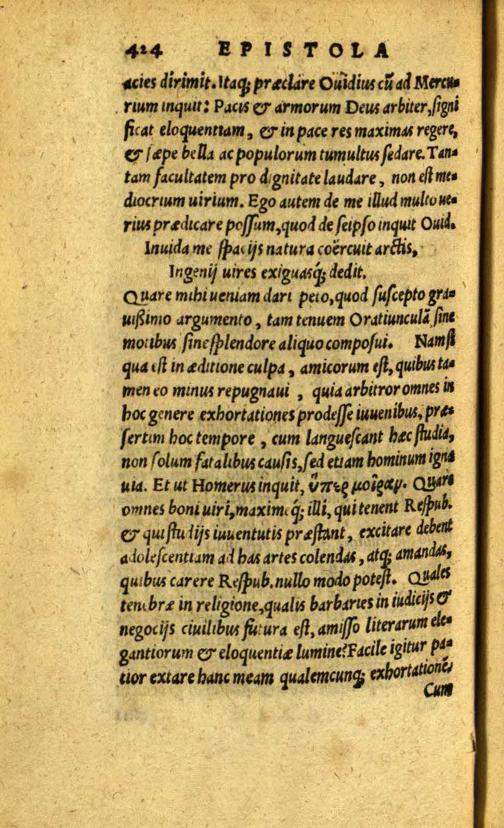 424 EPISTOLA
acies dirimit. Itaq; præclare Ouidius cũ ad Mercu-
rium inquit: Pacis & armorum Deus arbiter, signi
ficat eloquentiam, & in pace res maximas regere,
& sæpe bella ac populorum tumultus sedare. Tan-
tam facultatem pro dignitate laudare, non est me-
diocrium uirium. Ego autem de me illud multo ue-
rius prædicare possum, quod de seipso inquit Ouid.
Inuida me spacijs natura coërcuit arctis,
Ingenij uires exiguasq; dedit.
Quare mihi ueniam dari peto, quod suscepto gra-
uißimo argumento, tam tenuem Oratiunculã sine
motibus sine splendore aliquo composui. Nam si
qua est in æditione culpa, amicorum est, quibus ta-
men eo minus repugnaui, quia arbitror omnes in
hoc genere exhortationes prodesse iuuenibus, præ-
sertim hoc tempore, cum languescant hæc studia,
non solum fatalibus causis, sed etiam hominum igna
uia. Et ut Homerus inquit, ὑπερ μοῖραν. Quare
omnes boni uiri, maximeq; illi, qui tenent Respub.
& qui studijs iuuentutis præstant, excitare debent
adolescentiam ad has artes colendas, atq; amandas,
quibus carere Respub. nullo modo potest. Quales
tenebræ in religione, qualis barbaries in iudicijs &
negocijs ciuilibus futura est, amisso literarum ele-
gantiorum & eloquentiæ lumine? Facile igitur pa-
tior extare hanc meam qualemcunq; exhortationẽ,
Cum